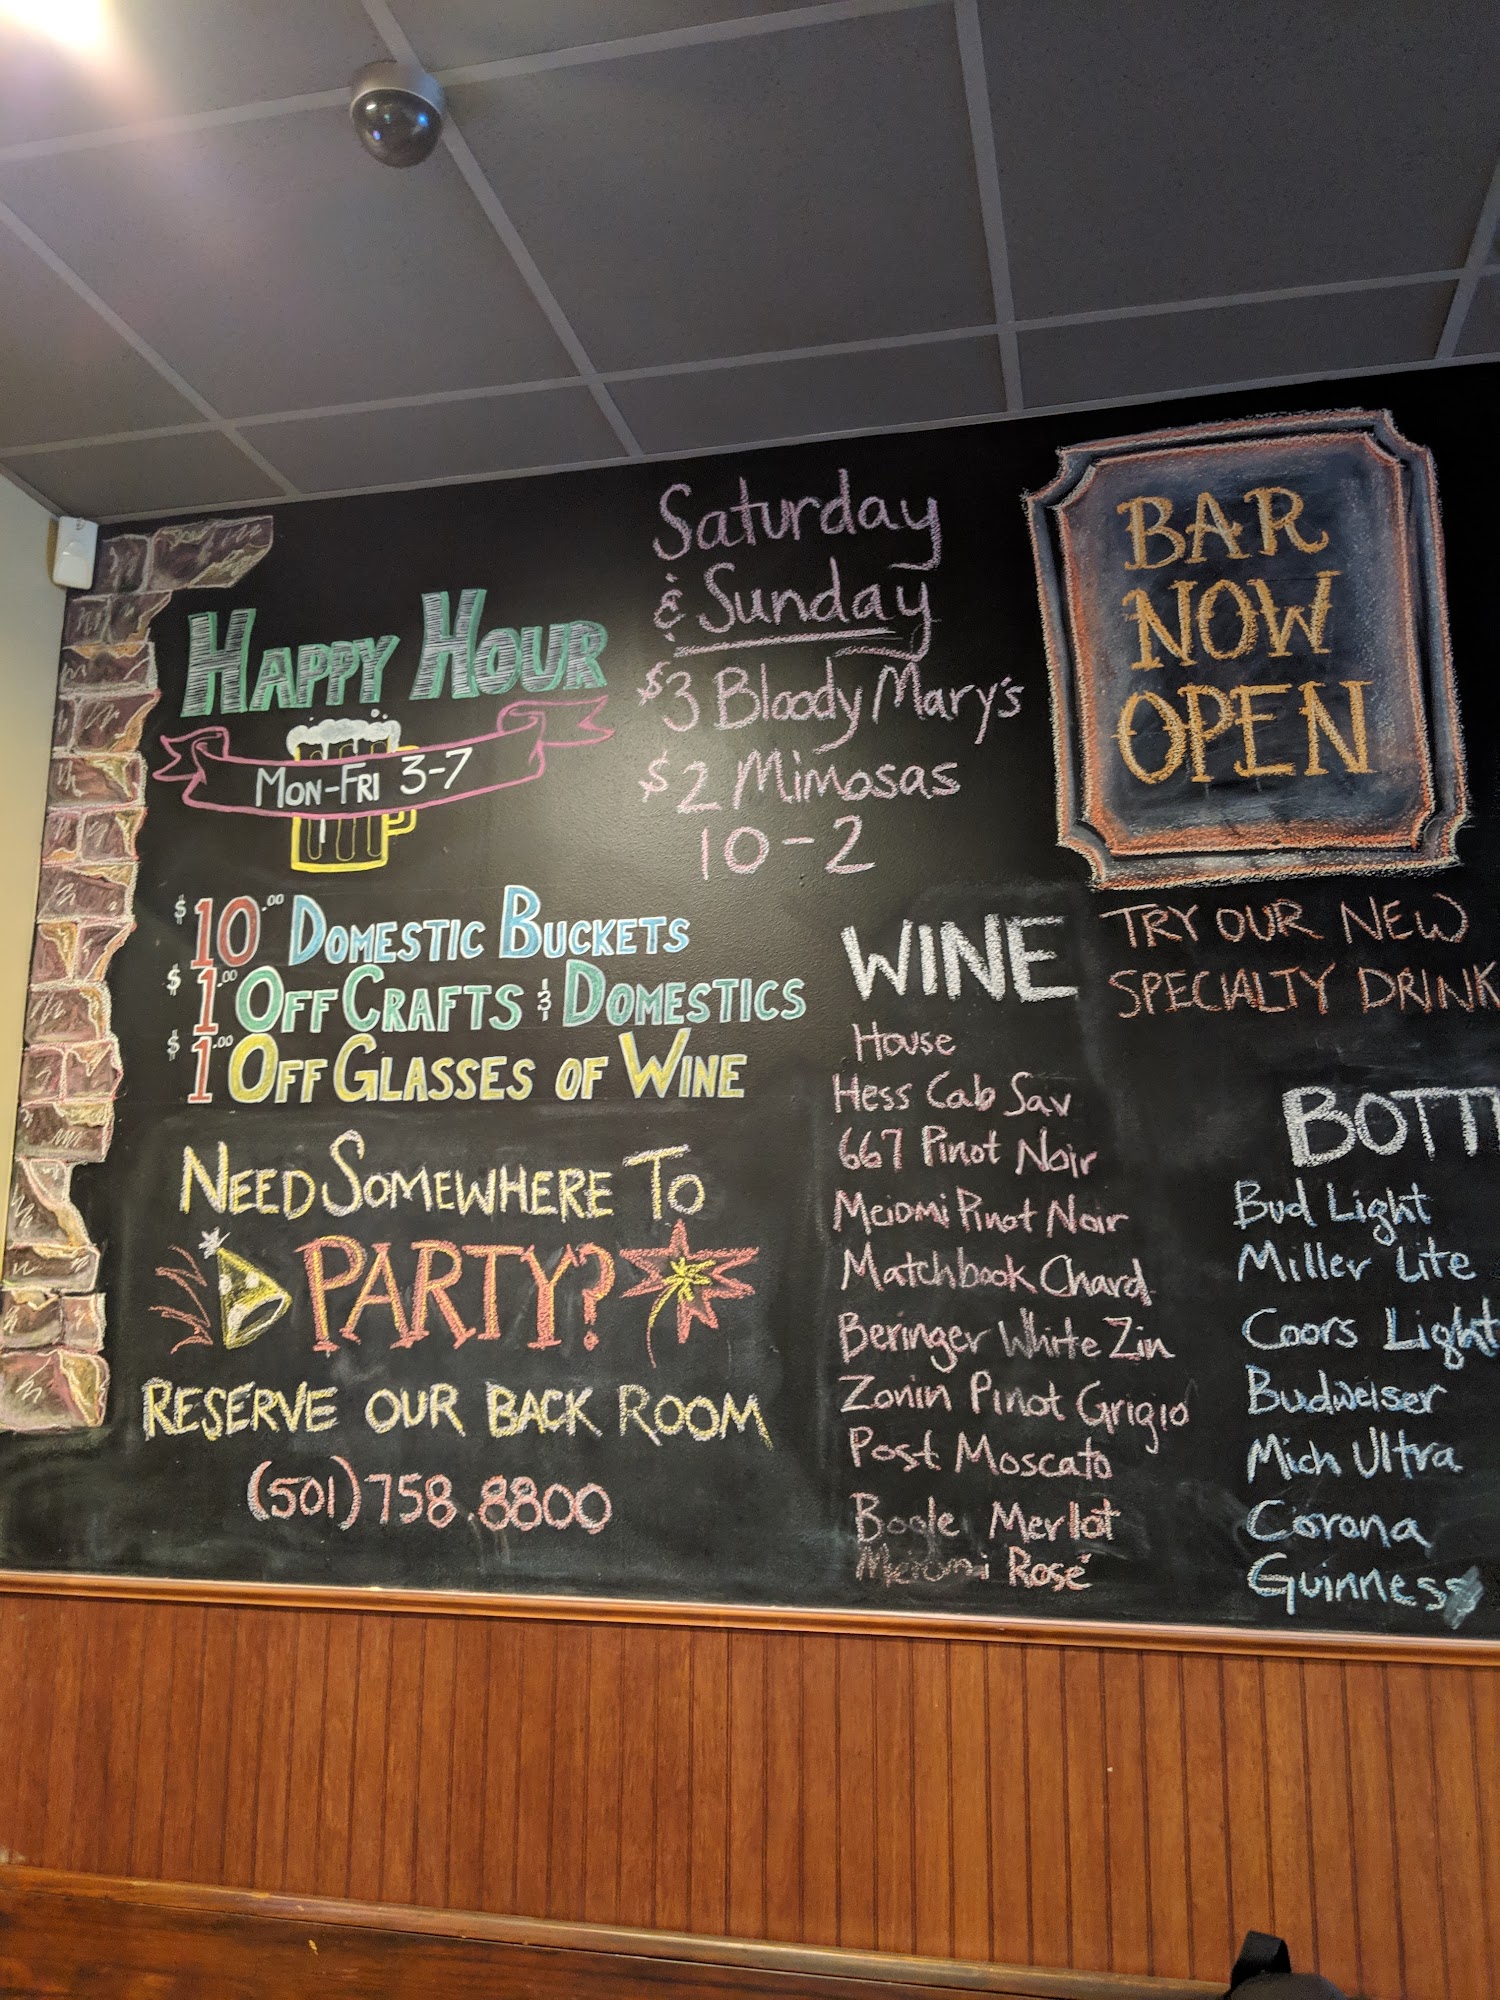 HAPPY HOUR
MON-FRI 3-7
$10.00 DOMESTIC BUCKETS
$1.00 OFF CRAFTS & DOMESTICS
$1.00 OFF GLASSES OF WINE
NEED SOMEWHERE TO
PARTY?
RESERVE OUR BACK ROOM
(501) 758.8800
Saturday
& Sunday
$3 Bloody Mary's
$2 Mimosas
10-2
BAR
NOW
OPEN
TRY OUR NEW
SPECIALTY DRINK
WINE
House
Hess Cab Sav
667 Pinot Noir
Meiomi Pinot Noir
Matchbook Chard
Beringer White Zin
Zonin Pinot Grigio
Post Moscato
Bogle Merlot
Meiomi Rosé
BOTT
Bud Light
Miller Lite
Coors Light
Budweiser
Mich Ultra
Corona
Guinness